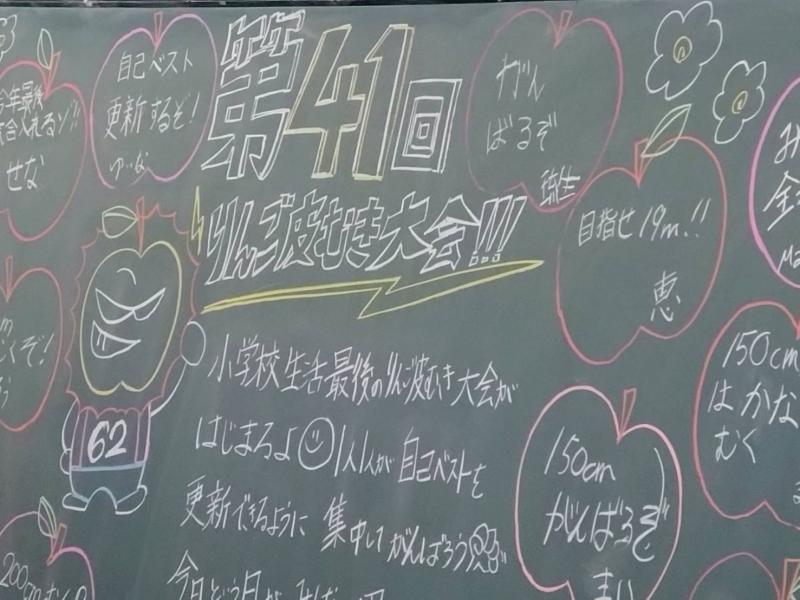 第41回
りんご皮むき大会!!!
小学校生活最後のりんご皮むき大会が
はじまるよ 1人1人が 自己ベストを
更新できるように 集中して がんばろう
自己ベスト
更新するぞ!
ゆいな
今年最後
気合入れるゾ!!
せな
がん
ばるぞ
弥生
目指せ 19m!!
恵
150cm
はかな
むく
150cm
がんばるぞ
まい
くぞ!
62
200cm